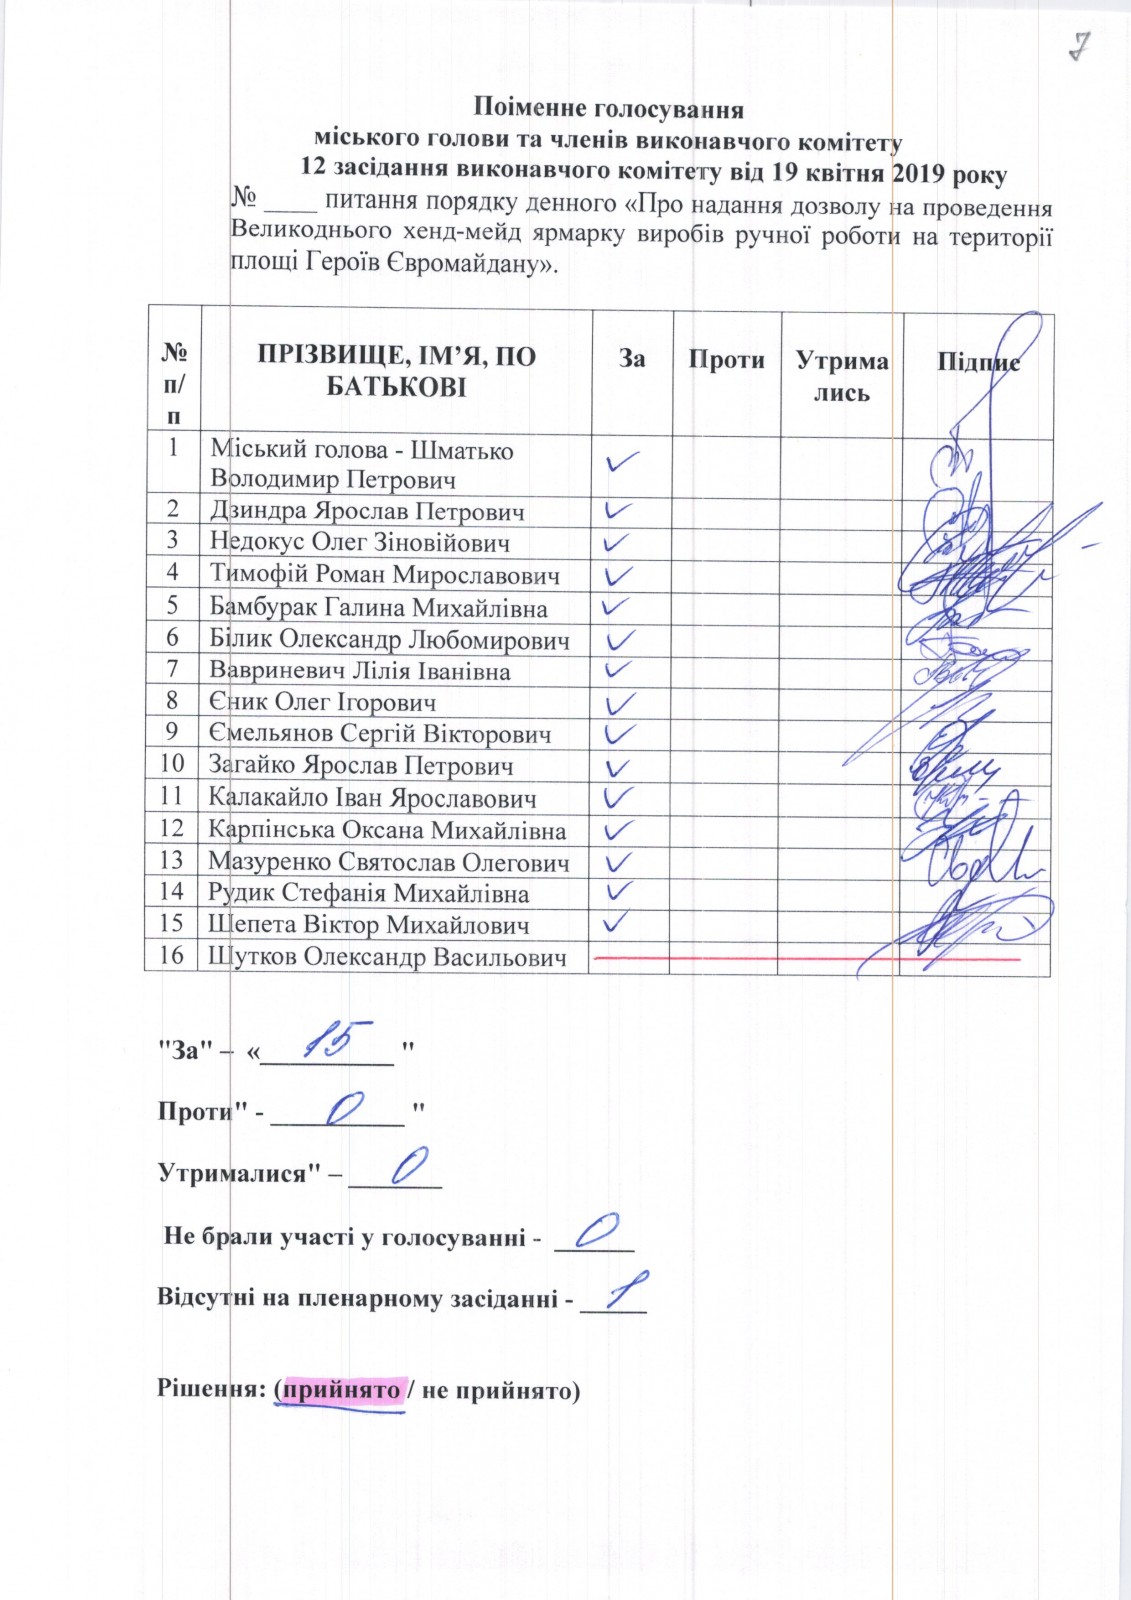 7
Поіменне голосування
міського голови та членів виконавчого комітету
12 засідання виконавчого комітету від 19 квітня 2019 року
№ ____ питання порядку денного «Про надання дозволу на проведення
Великоднього хенд-мейд ярмарку виробів ручної роботи на території
площі Героїв Євромайдану».
№ п/п ПРІЗВИЩЕ, ІМ’Я, ПО БАТЬКОВІ За Проти Утрима лись Підпис
1 Міський голова - Шматько
Володимир Петрович ✓
2 Дзиндра Ярослав Петрович ✓
3 Недокус Олег Зіновійович ✓
4 Тимофій Роман Мирославович ✓
5 Бамбурак Галина Михайлівна ✓
6 Білик Олександр Любомирович ✓
7 Вавриневич Лілія Іванівна ✓
8 Єник Олег Ігорович ✓
9 Ємельянов Сергій Вікторович ✓
10 Загайко Ярослав Петрович ✓
11 Калакайло Іван Ярославович ✓
12 Карпінська Оксана Михайлівна ✓
13 Мазуренко Святослав Олегович ✓
14 Рудик Стефанія Михайлівна ✓
15 Шепета Віктор Михайлович ✓
16 Шутков Олександр Васильович
"За" – « 15 "
Проти" - 0 "
Утрималися" – 0
Не брали участі у голосуванні - 0
Відсутні на пленарному засіданні - 1
Рішення: (прийнято / не прийнято)